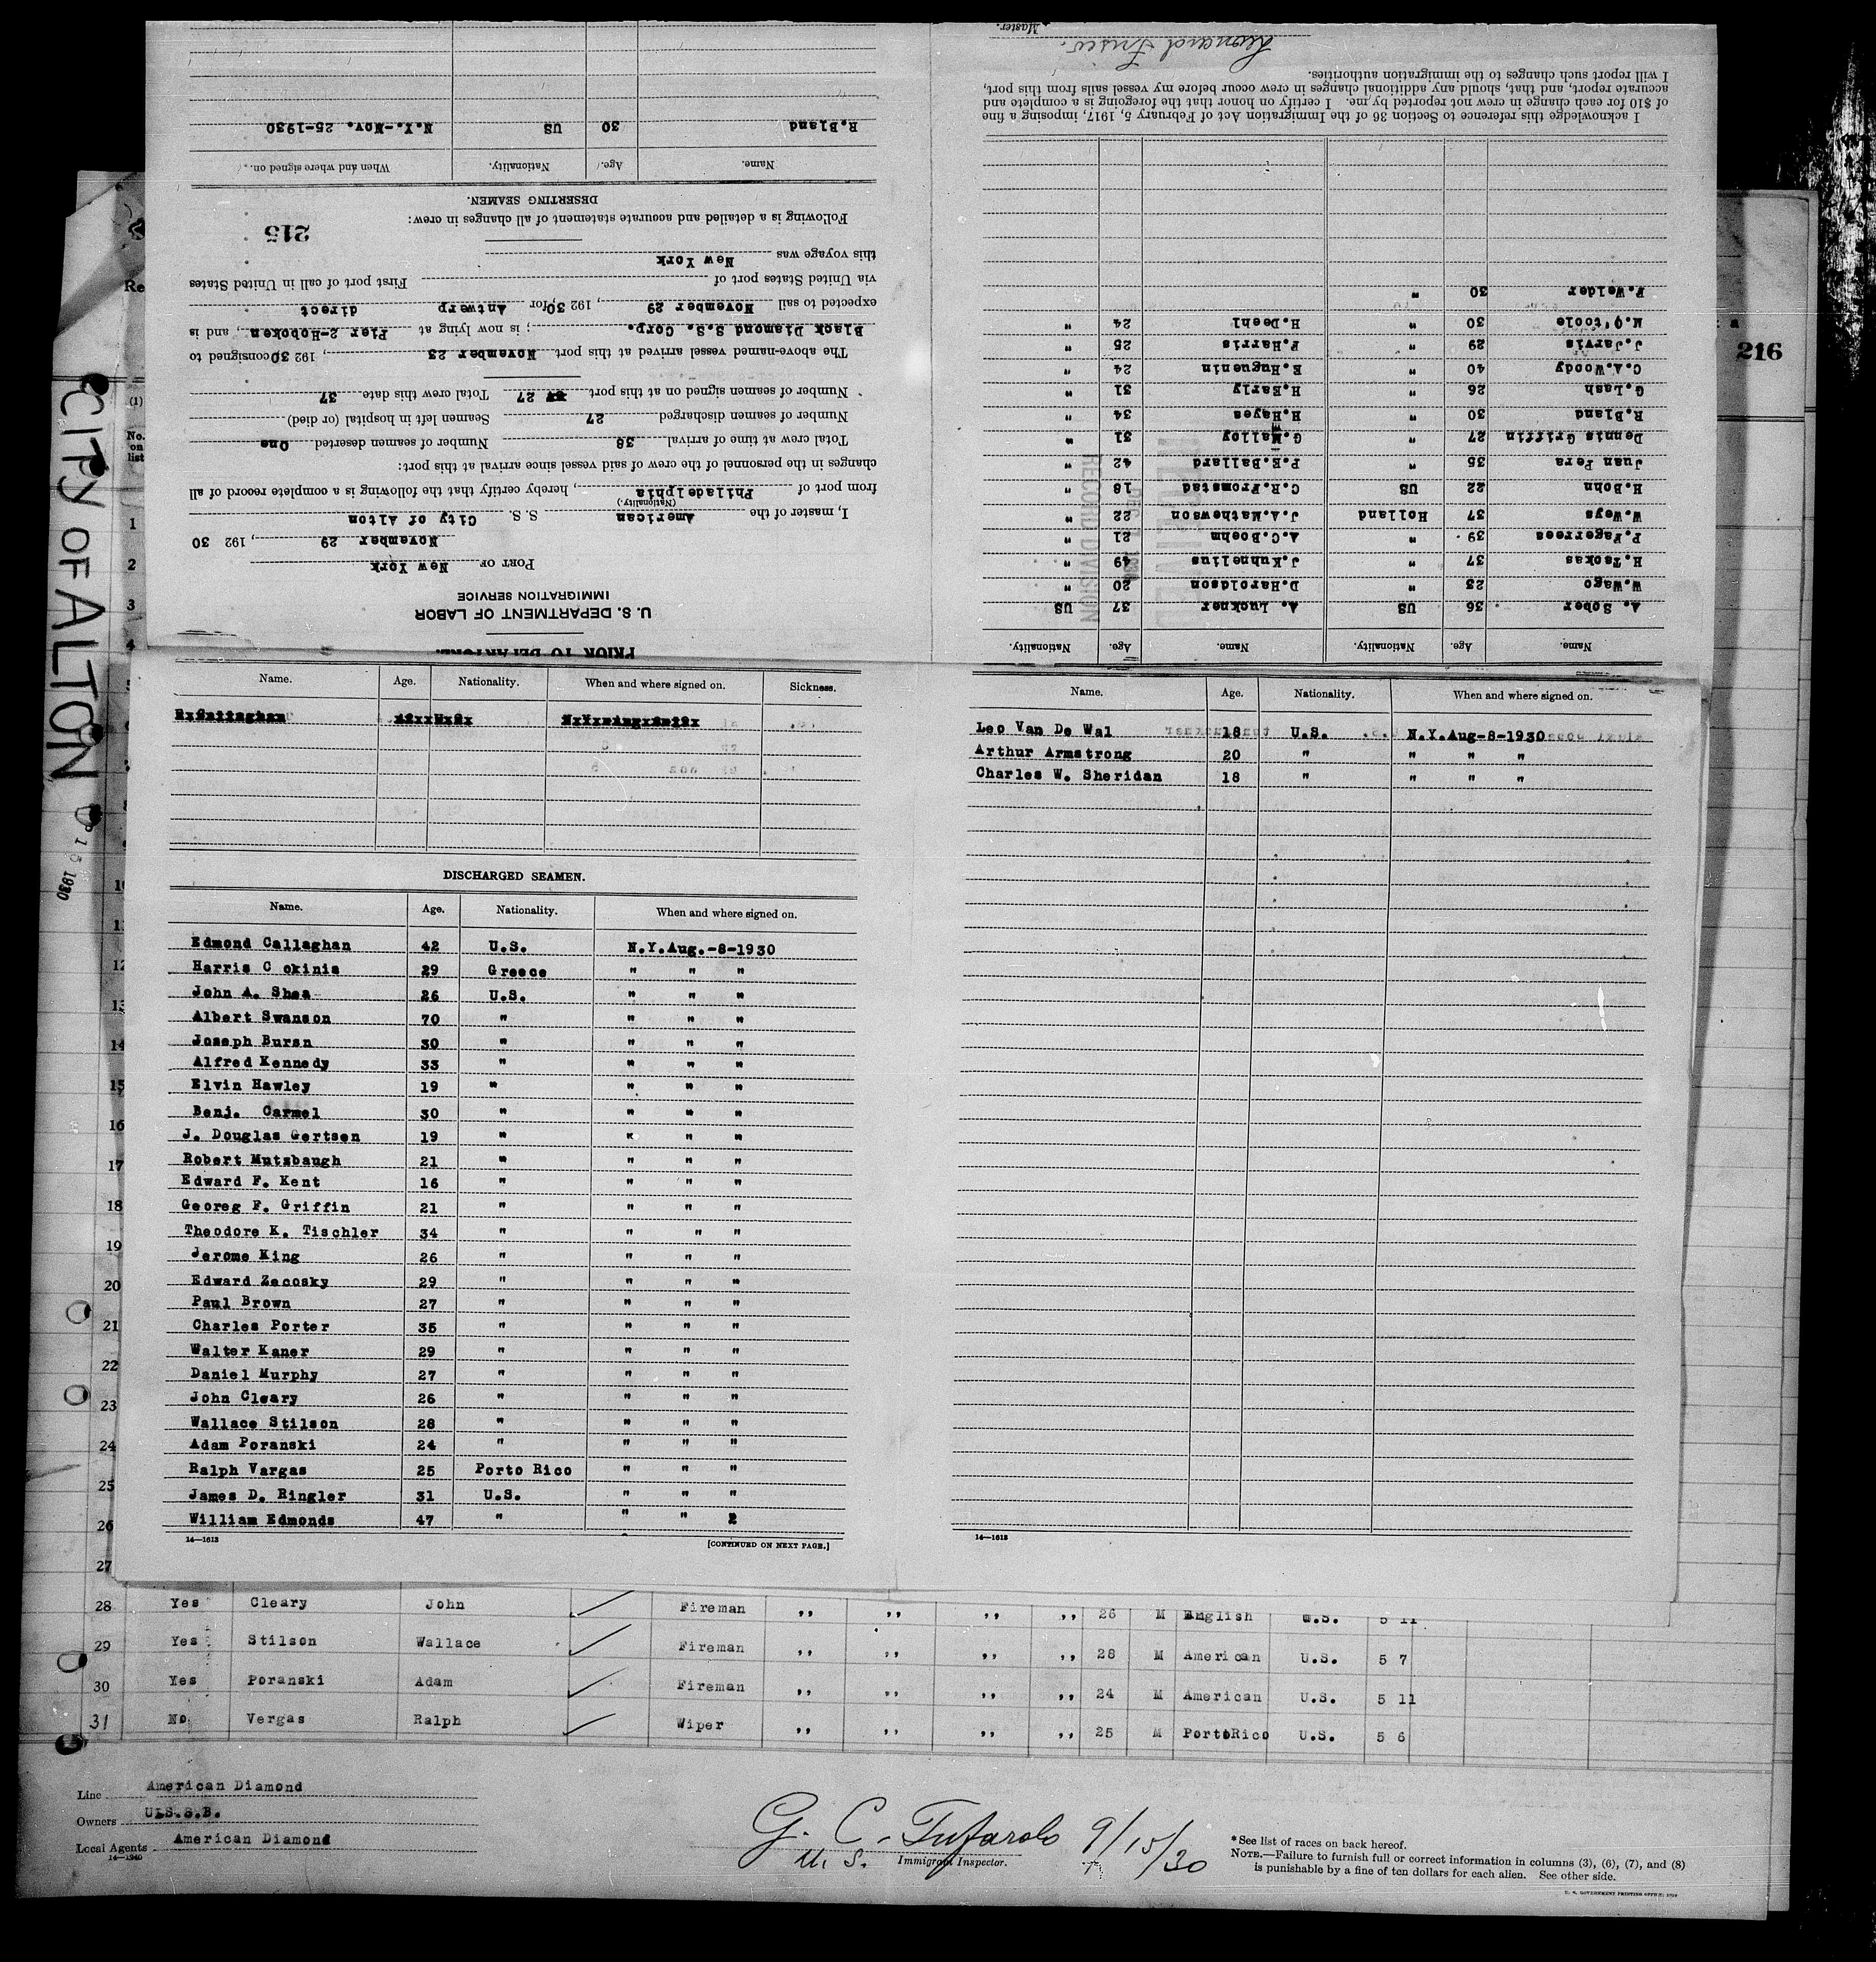 PRIOR TO DEPARTURE.
U. S. DEPARTMENT OF LABOR
IMMIGRATION SERVICE
PORT OF New York
November 29, 192 30
I, master of the American S. S. City of Alton
(Nationality.)
from port of Philadelphia, hereby certify that the following is a complete record of all
changes in the personnel of the crew of said vessel since arrival at this port:
Total crew at time of arrival 38 Number of seamen deserted One
Number of seamen discharged 27 Seamen left in hospital (or died)
Number of seamen signed on at this port 27 Total crew this date 37
The above-named vessel arrived at this port November 23, 192 30 consigned to
Black Diamond S.S. Corp.; is now lying at Pier 2-Hoboken, and is
expected to sail November 29, 192 30, for Antwerp direct
via United States port of First port of call in United States
this voyage was New York
215
Following is a detailed and accurate statement of all changes in crew:
DESERTING SEAMEN.
Name. Age. Nationality. When and where signed on.
R.Bland 30 US N.Y.-Nov. 25-1930
Name. Age. Nationality. Name. Age. Nationality.
A. Sober 36 US A. Luckner 37 US
W.Wago 23 " D.Haroldson 20 "
H.Tsokas 37 " J.Kuhnelius 49 "
P.Fagerroos 39 " A.C.Boehm 21 "
W.Weys 37 Holland J.A.Mathewson 22 "
H.Bohn 22 US C.R.Fromstad 18 "
Juan Pera 35 " P.E.Ballard 42 "
Dennis Griffin 27 " G.Malloy 31 "
R.Bland 30 " H.Hayes 34 "
G.Lash 26 " H.Early 31 "
C.A.Woody 40 " E.Huguenin 24 "
J.Jarvis 29 " F.Harris 25 "
M.O'toole 30 " H.Deehl 24 "
F.Welder 30 "
RECORD DIVISION
I acknowledge this reference to Section 36 of the Immigration Act of February 5, 1917, imposing a fine
of $10 for each change in crew not reported by me. I certify on honor that the foregoing is a complete and
accurate report, and that, should any additional changes in crew occur before my vessel sails from this port,
I will report such changes to the immigration authorities.
Master.
216
CITY OF ALTON
1930
Re
(1)
No.
on
list
1
2
3
4
Name. Age. Nationality. When and where signed on. Sickness.
DISCHARGED SEAMEN.
Name. Age. Nationality. When and where signed on.
Edmond Callaghan 42 U.S. N.Y.Aug.-8-1930
Harris C okinis 29 Greece " " "
John A. Shea 26 U.S. " " "
Albert Swanson 70 " " " "
Joseph Bursn 30 " " " "
Alfred Kennedy 33 " " " "
Elvin Hawley 19 " " " "
Benj. Carmel 30 " " " "
J. Douglas Gertsen 19 " " " "
Robert Mutzbaugh 21 " " " "
Edward F. Kent 16 " " " "
Georeg F. Griffin 21 " " " "
Theodore K. Tischler 34 " " " "
Jerome King 26 " " " "
Edward Zecosky 29 " " " "
Paul Brown 27 " " " "
Charles Porter 35 " " " "
Walter Kaner 29 " " " "
Daniel Murphy 27 " " " "
John Cleary 26 " " " "
Wallace Stilson 28 " " " "
Adam Poranski 24 " " " "
Ralph Vargas 25 Porto Rico " " "
James D. Ringler 31 U.S. " " "
William Edmonds 47 " " " 2
14—1613 [CONTINUED ON NEXT PAGE.]
Name. Age. Nationality. When and where signed on.
Leo Van De Wal 18 U.S. N.Y.Aug-8-1930
Arthur Armstrong 20 " " " "
Charles W. Sheridan 18 " " " "
14—1613
12
13
14
15
16
17
18
19
20
21
22
23
24
25
26
27
28 Yes Cleary John Fireman ,, ,, ,, ,, 26 M English U.S. 5 11
29 Yes Stilson Wallace Fireman ,, ,, ,, ,, 28 M American U.S. 5 7
30 Yes Poranski Adam Fireman ,, ,, ,, ,, 24 M American U.S. 5 11
31 No Vergas Ralph Wiper ,, ,, ,, ,, 25 M PortoRico U.S. 5 6
Line American Diamond
Owners U.S.S.B.
Local Agents American Diamond
14—1940
G. C. Tufarolo 9/15/30
U. S. Immigrant Inspector.
* See list of races on back hereof.
NOTE.—Failure to furnish full or correct information in columns (3), (6), (7), and (8)
is punishable by a fine of ten dollars for each alien. See other side.